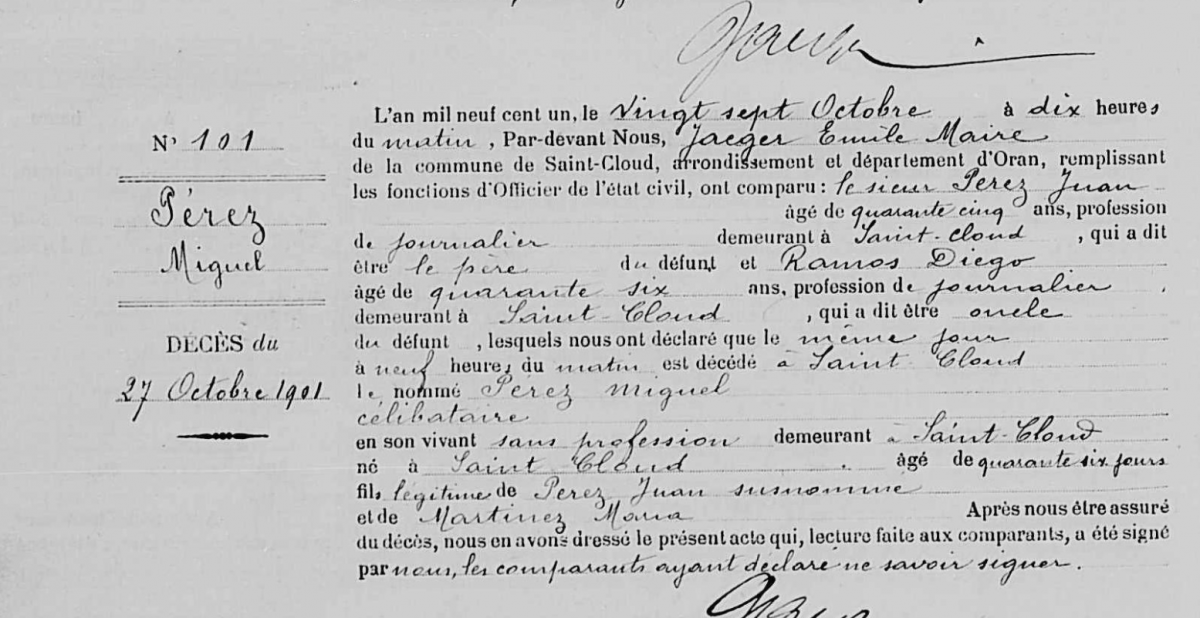 L'an mil neuf cent un, le Vingt sept Octobre à dix heures
du matin, Par-devant Nous, Jaeger Emile Maire
de la commune de Saint-Cloud, arrondissement et département d'Oran, remplissant
les fonctions d'Officier de l'état civil, ont comparu : le sieur Perez Juan
âgé de quarante cinq ans, profession
de journalier demeurant à Saint-Cloud, qui a dit
être le père du défunt et Ramos Diego
âgé de quarante six ans, profession de journalier
demeurant à Saint-Cloud, qui a dit être oncle
du défunt, lesquels nous ont déclaré que le même jour
à neuf heures du matin est décédé à Saint Cloud
le nommé Pérez Miguel
célibataire
en son vivant sans profession demeurant à Saint-Cloud
né à Saint Cloud. âgé de quarante six jours
fils légitime de Perez Juan susnommé
et de Martinez Maria Après nous être assuré
du décès, nous en avons dressé le présent acte qui, lecture faite aux comparants, a été signé
par nous, les comparants ayant déclaré ne savoir signer.
N° 101
Pérez
Miguel
DÉCÈS du
27 Octobre 1901